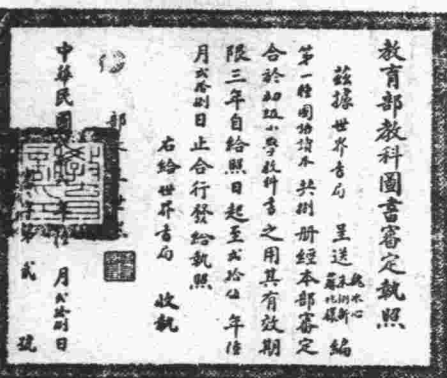 教育部教科圖書審定執照
茲據世界書局呈送魏冰心 編
第一種國語讀本共捌册經本部審定
合於初級小學教科書之用其有效期
限三年自給照日起至貳拾伍年陸
月貳拾捌日止合行發給執照
右給世界書局 收執
部
中華民國 年陸月貳拾捌日
第貳號